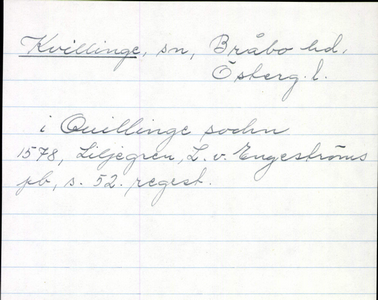 Kvillinge, sn, Bråbo hd,
Österg. l.
i Quillinge sochn
1578, Liljegren, L. v. Engeströms
pb, s. 52. regest.